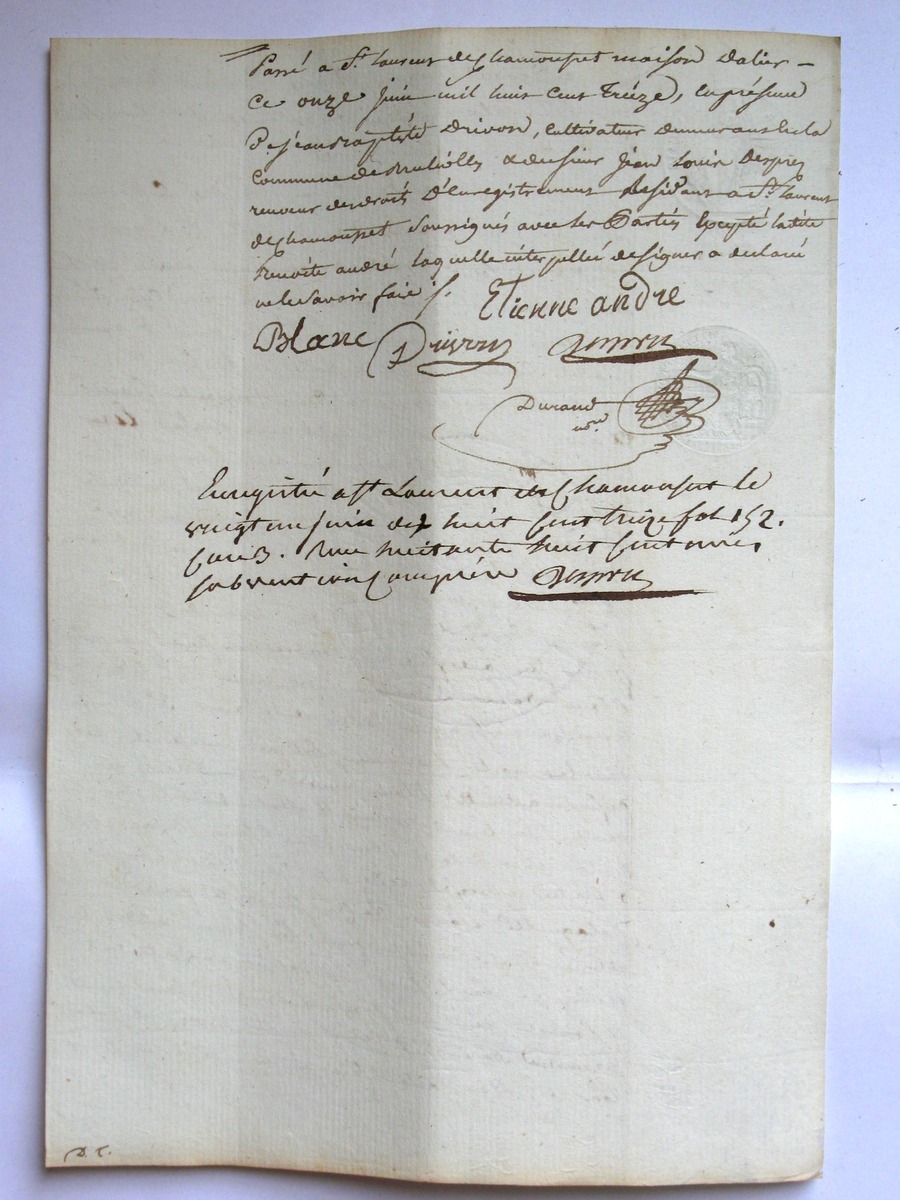 Passé a St. Laurent de Chamousset maison Dalier
Ce onze juin mil huit Cent Treize, en présence
De jean Baptiste Drivon, Cultivateur demeurant le la
Commune de & de sieur Jean Louis Desprez
receveur des droits D'Enregistrement Résident a St. Laurent
de Chamousset Soussignés avec les Parties Excepté ladite
Benoite andré laquelle interpellée de signer a declaré
ne le savoir faire ./.
Etienne andre
Blanc Drivon
Durand
nre
Enregistré a St Laurent de Chamousset le
vingt un juin dix huit Cent treize fol 152.
Case 3. Reçu huit Cent
subvention Comprise
D. C.